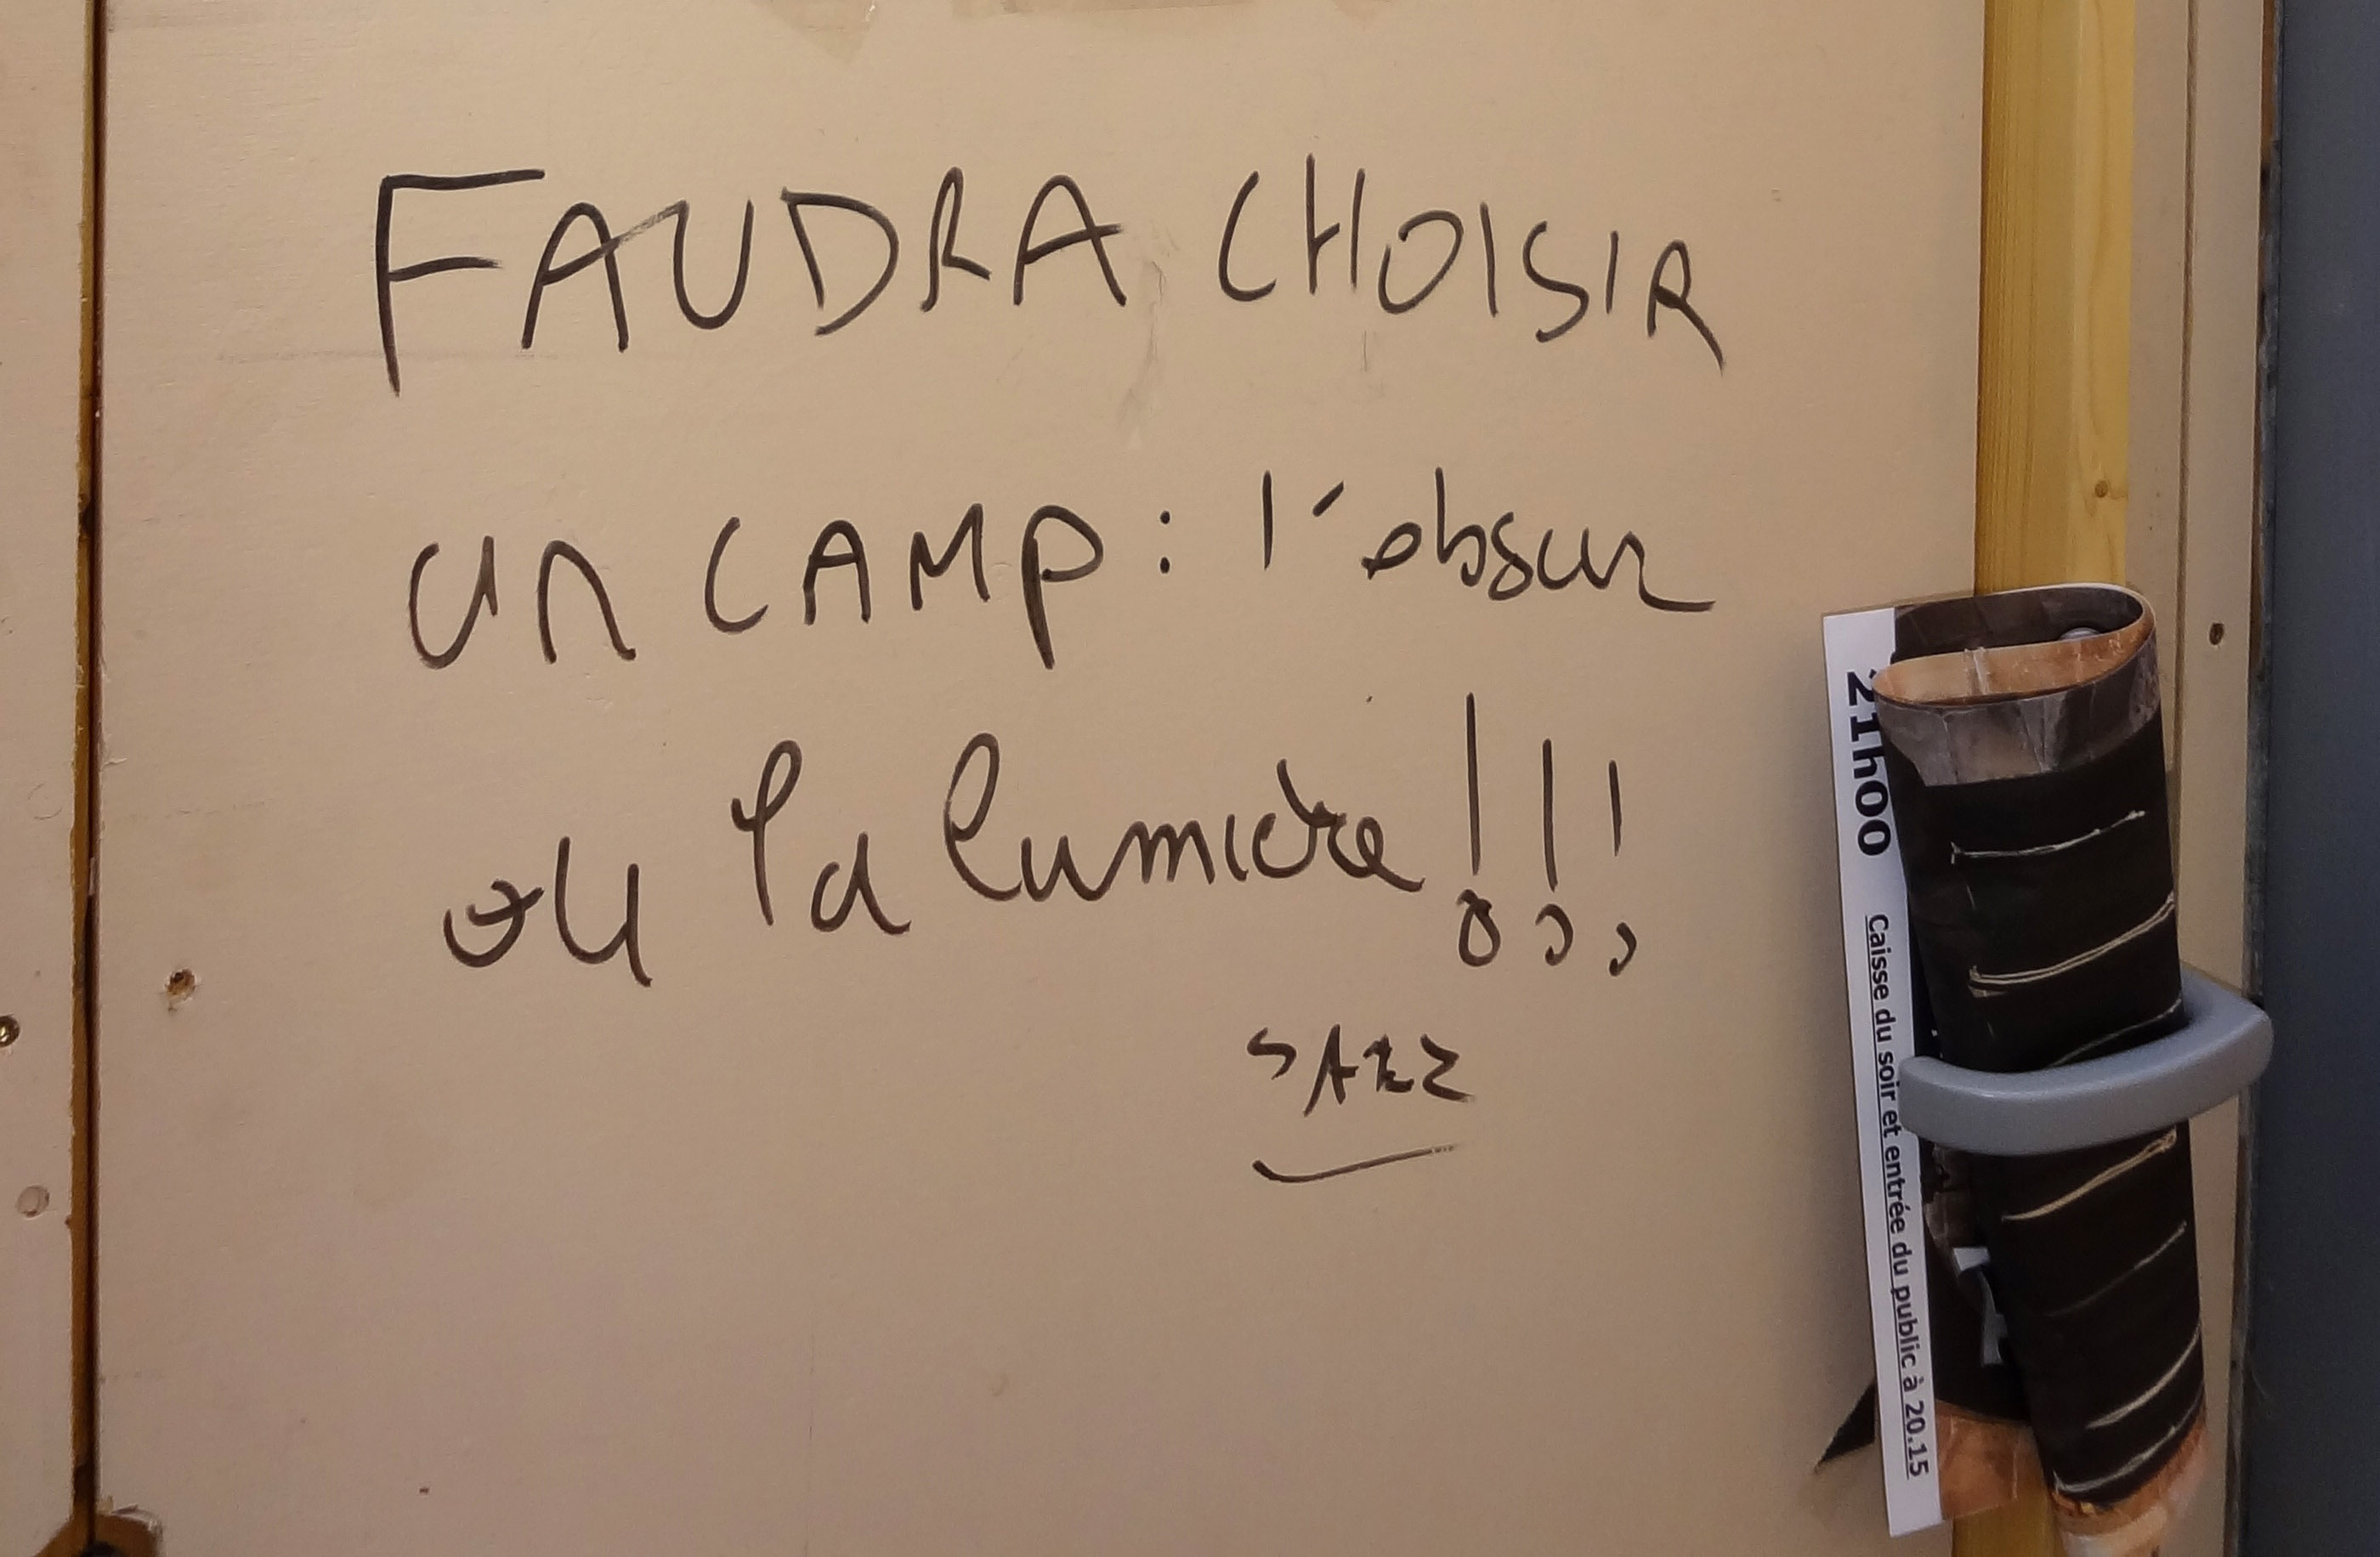 FAUDRA CHOISIR
un CAMP : l'obscur
ou la lumière !!!
SAZZ
21h00
Caisse du soir et entrée du public à 20.15